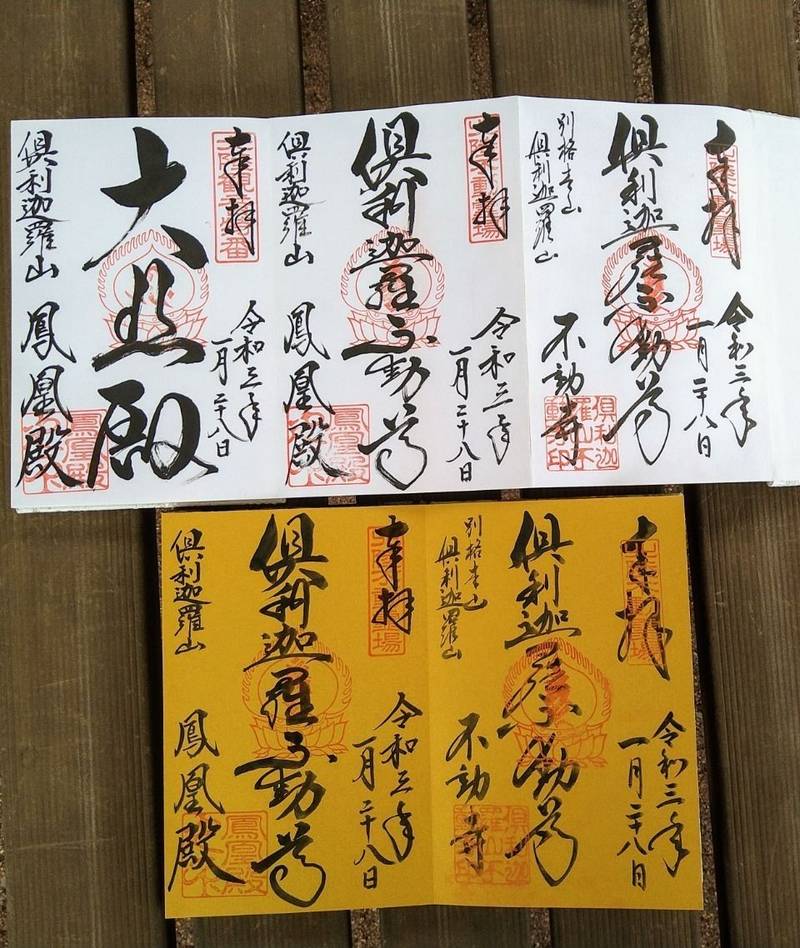 奉拝
令和三年
一月二十八日
倶利迦羅不動尊
別格本山
倶利迦羅山
不動寺
奉拝
令和三年
一月二十八日
倶利迦羅不動尊
倶利迦羅山 鳳凰殿
奉拝
令和三年
一月二十八日
大悲殿
倶利迦羅山 鳳凰殿
奉拝
令和三年
一月二十八日
倶利迦羅不動尊
別格本山
倶利迦羅山
不動寺
奉拝
令和三年
一月二十八日
倶利迦羅不動尊
倶利迦羅山 鳳凰殿